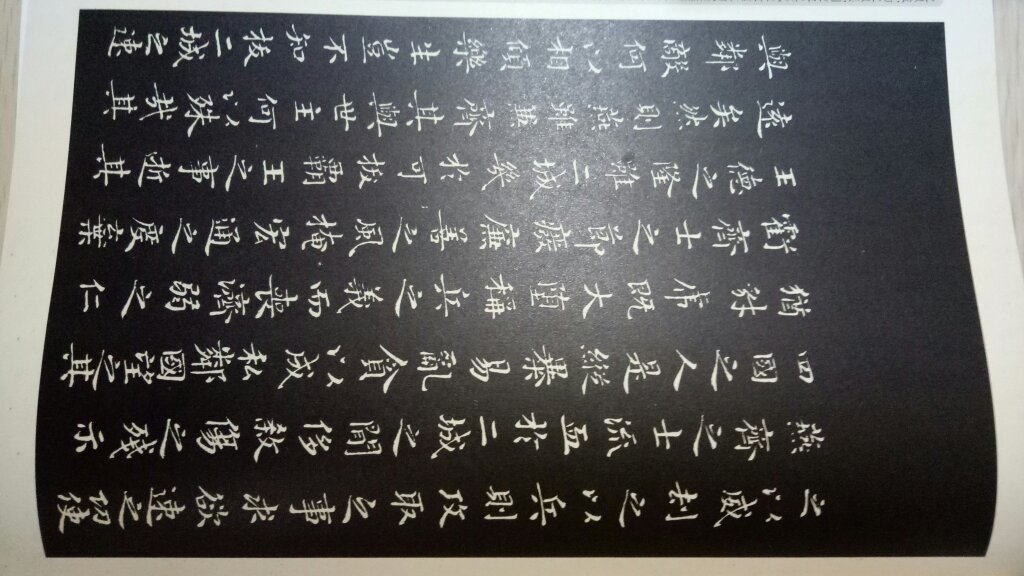 之以威劫之以兵則攻取之事求欲速之功使
燕齊之士流血於二城之間侈殺傷之殘示
四國之人是縱暴易亂貪以成私鄰國望之其
猶豺虎既大墮稱兵之義而喪濟弱之仁
虧齊士之節廢廉善之風掩宏通之度棄
王德之隆雖二城幾於可拔霸王之事逝其
遠矣然則燕雖兼齊其與世主何以殊哉其
與鄰敵何以相傾樂生豈不知拔二城之速